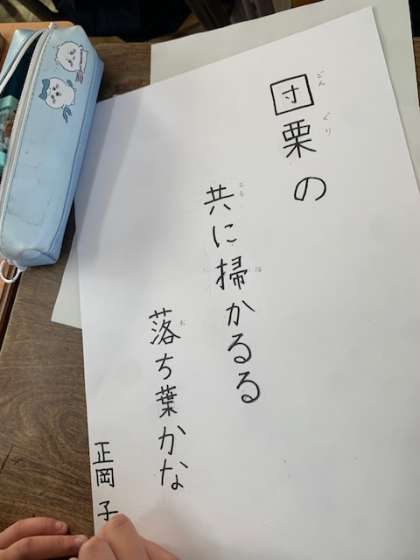 団栗の
共に掃かるる
落ち葉かな
正岡子